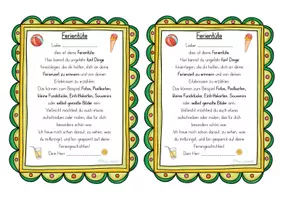 Ferientüte
Liebe
dies ist deine Ferientüte.
Hier kannst du ungefähr fünf Dinge
hineinpacken, die dir helfen, dich an deine
Ferienzeit zu erinnern und von deinen
Erlebnissen zu erzählen.
Das können zum Beispiel Fotos, Postkarten,
kleine Fundstücke, Eintrittskarten, Souvenirs
oder selbst gemalte Bilder sein.
Vielleicht möchtest du auch etwas
aufschreiben oder malen, das für dich
besonders schön war.
Ich freue mich schon darauf, zu sehen, was
du mitbringst, und bin gespannt auf deine
Feriengeschichten!
Dein Herr
Ferientüte
Lieber
dies ist deine Ferientüte.
Hier kannst du ungefähr fünf Dinge
hineinpacken, die dir helfen, dich an deine
Ferienzeit zu erinnern und von deinen
Erlebnissen zu erzählen.
Das können zum Beispiel Fotos, Postkarten,
kleine Fundstücke, Eintrittskarten, Souvenirs
oder selbst gemalte Bilder sein.
Vielleicht möchtest du auch etwas
aufschreiben oder malen, das für dich
besonders schön war.
Ich freue mich schon darauf, zu sehen, was
du mitbringst, und bin gespannt auf deine
Feriengeschichten!
Dein Herr